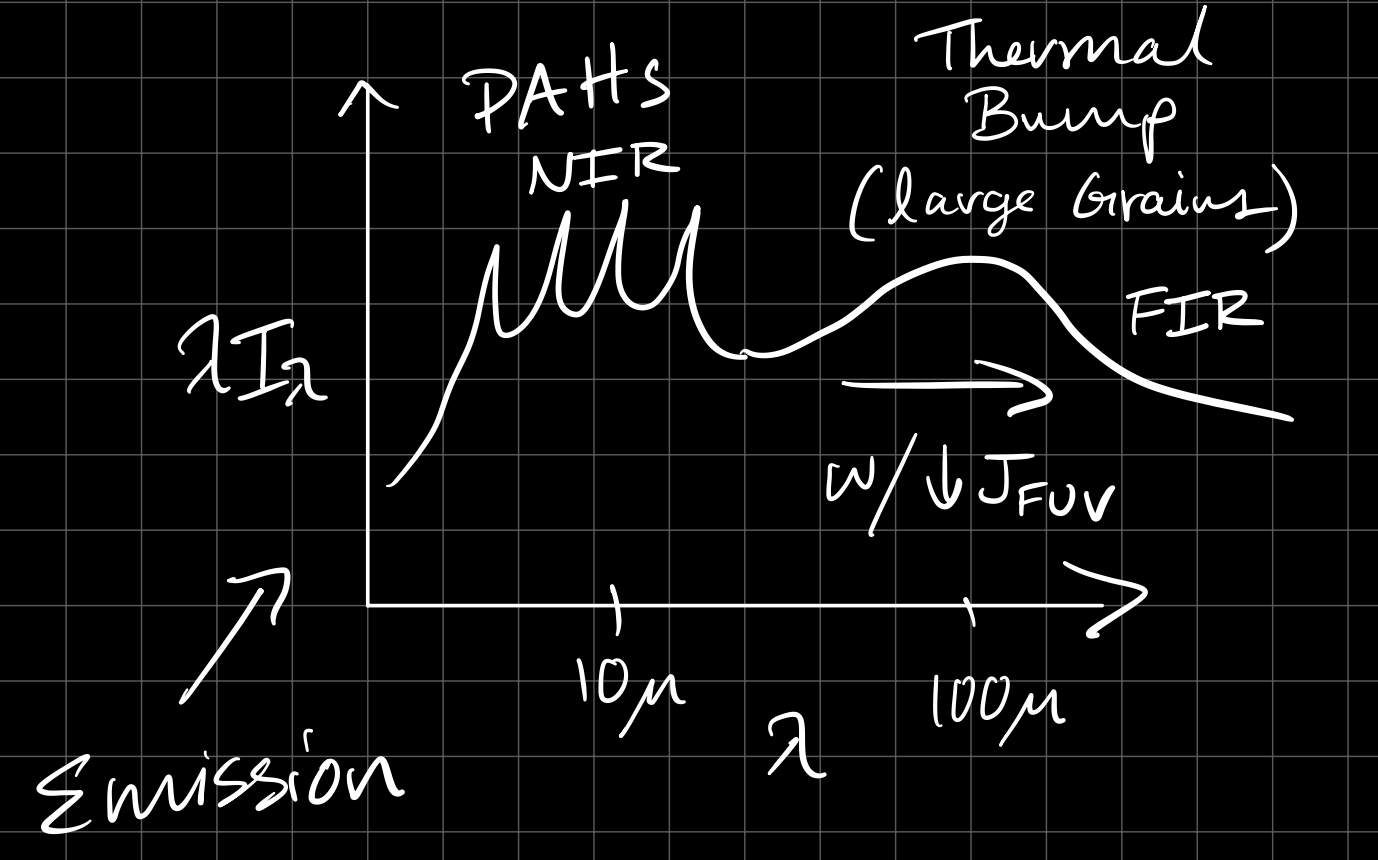 PAHs
NIR
Thermal
Bump
(large Grains)
FIR
λI_λ
w/ ↓ J_FUV
10μ
100μ
λ
Emission